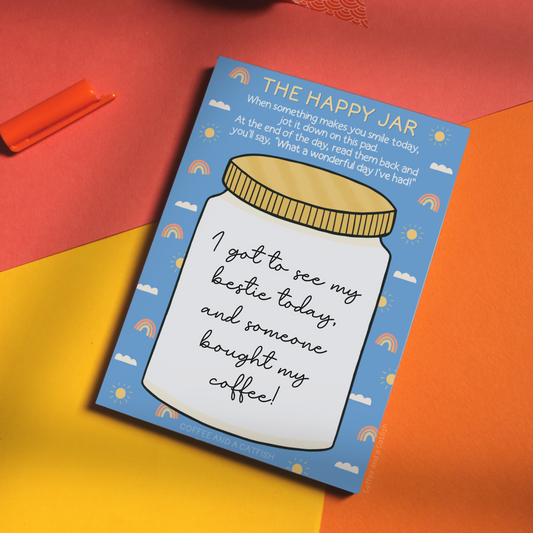 THE HAPPY JAR
When something makes you smile today,
jot it down on this pad.
At the end of the day, read them back and
you'll say, "What a wonderful day I've had!"
I got to see my
bestie today,
and someone
bought my
coffee!
COFFEE AND A CATFISH
Coffee and a Catfish